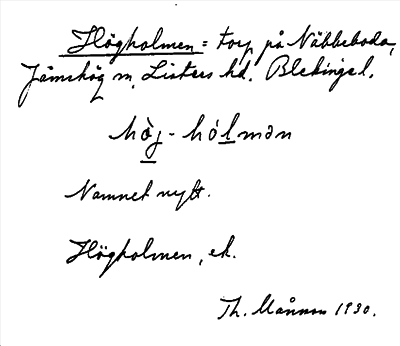 Högholmen = torp på Näbbeboda,
Jämshög sn, Listers hd. Blekinge l.
hø̀j - hólmən
Namnet nytt.
Högholmen, ek.
Th. 1930.